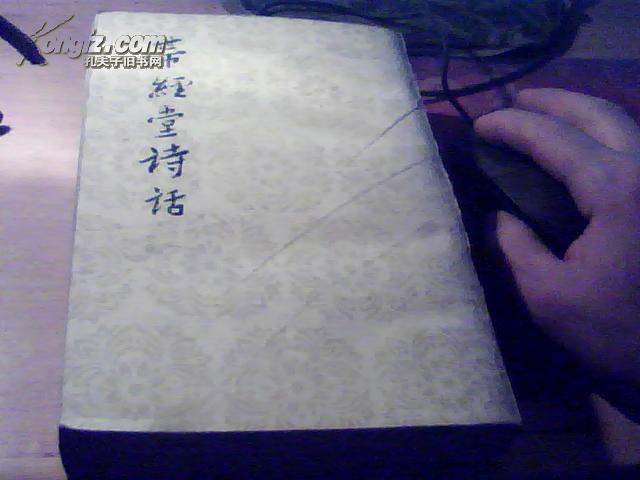 Kongfz.com
孔夫子旧书网
帶經堂詩話